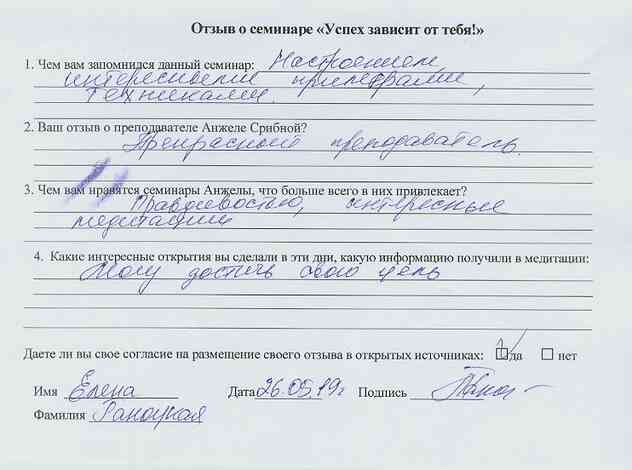 Отзыв о семинаре «Успех зависит от тебя!»
1. Чем вам запомнился данный семинар: Настроением,
интересными примерами,
техниками.
2. Ваш отзыв о преподавателе Анжеле Срибной?
Прекрасный преподаватель.
3. Чем вам нравятся семинары Анжелы, что больше всего в них привлекает?
Правдивостью, интересные
медитации
4. Какие интересные открытия вы сделали в эти дни, какую информацию получили в медитации:
Могу достичь свою цель
Даете ли вы свое согласие на размещение своего отзыва в открытых источниках: да нет
Имя Елена Дата 26.05.19г Подпись
Фамилия